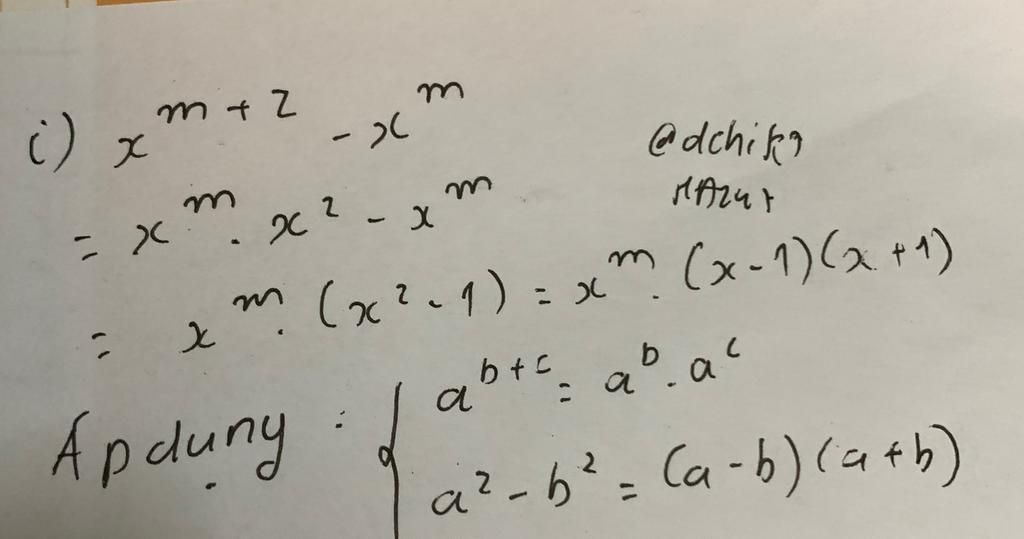 i) x^{m+2} - x^m
= x^m . x^2 - x^m
= x^m . (x^2 - 1) = x^m . (x - 1)(x + 1)
Áp dụng : { a^{b+c} = a^b . a^c
a^2 - b^2 = (a - b)(a + b)